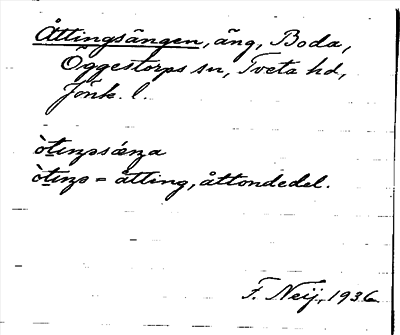 Åttingsängen, äng, Boda,
Öggestorps sn, Tveta hd,
Jönk. l.
òtɩŋsǽŋa
òtɩŋ = åtting, åttondedel.
F. Neij, 1936